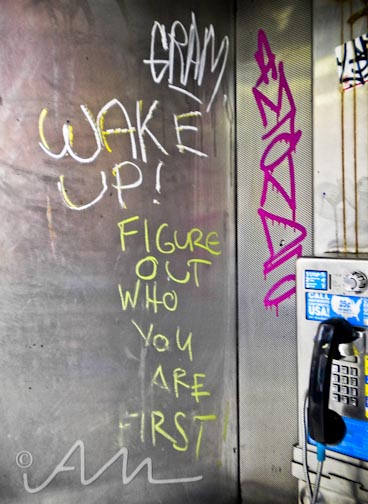 GRAM
WAKE
UP!
FIGURE
OUT
WHO
YOU
ARE
FIRST
CALL
USA!
25¢
© AM